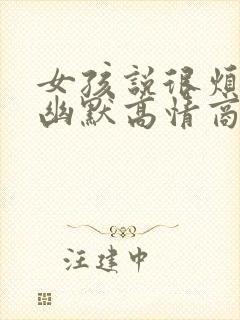 女孩说很烦
幽默高情商
汪建中